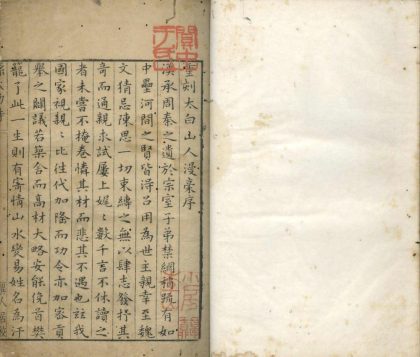 重刻太白山人漫稾序
漢承周秦之遺於宗室子弟禁網踈濶如
中壘河間之賢皆得召用為世主親幸至魏
文猜忌陳思一切束縛之無以肆志發抒其
奇而通親求試屢上娓々數千言不休讀之
者未嘗不掩卷憐其材而悲其不遇也在我
國家視親々比往代加隆而功令亦加密貢
舉之闕議若築舍而高材大略安能俛首樊
籠了此一生則有寄情山水變易姓名為汗